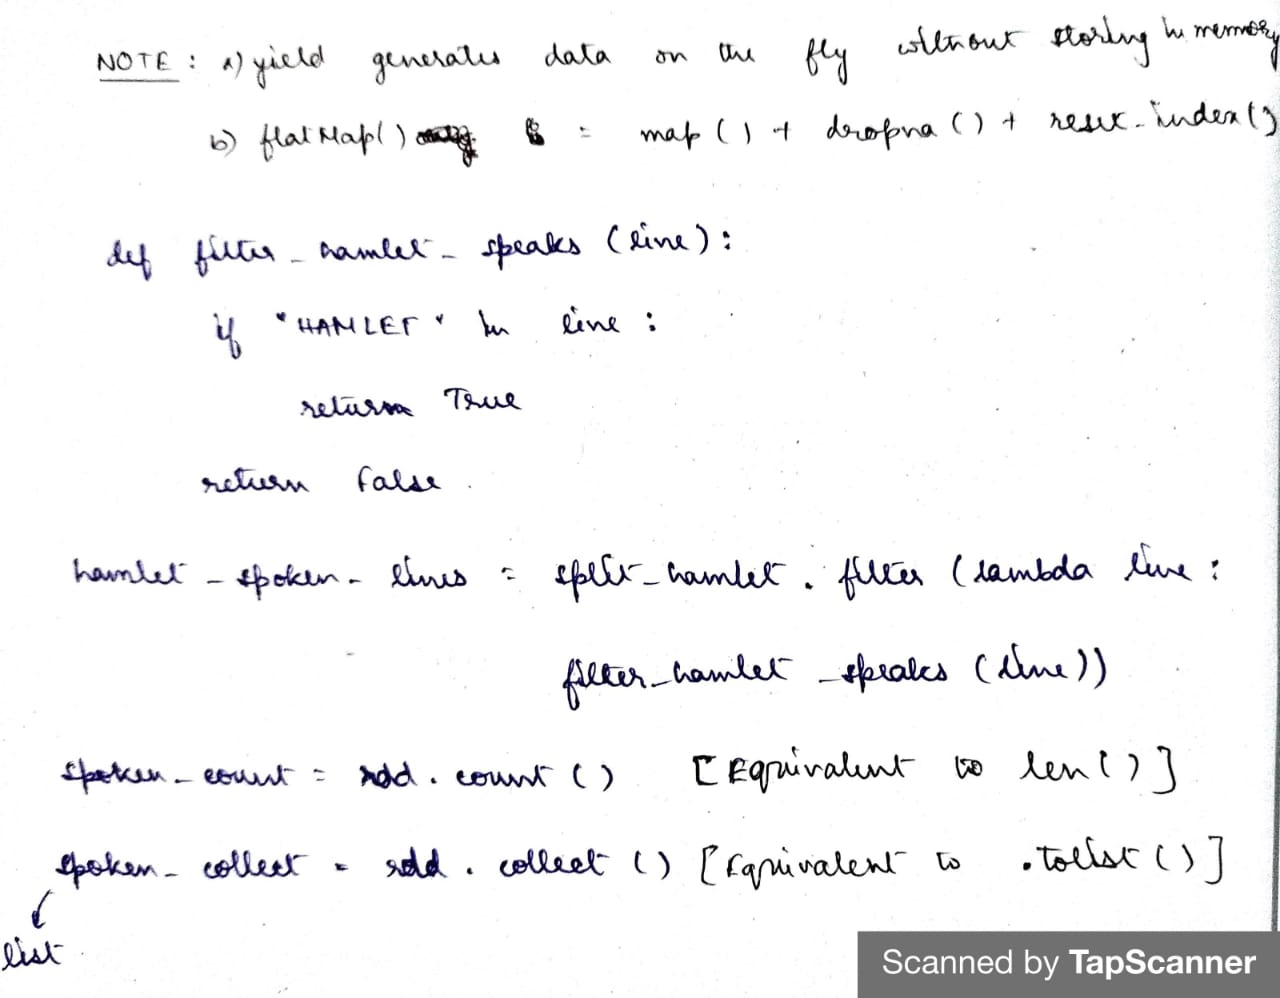 NOTE : a) yield generates data on the fly without storing in memory
b) flatMap() = map() + dropna() + reset_index()
def filter_hamlet_speaks (line):
if "HAMLET" in line :
return True
return False.
hamlet_spoken_lines = split_hamlet.filter (lambda line :
filter_hamlet_speaks (line))
spoken_count = rdd.count() [Equivalent to len()]
spoken_collect = rdd.collect() [Equivalent to .tolist()]
list
Scanned by TapScanner